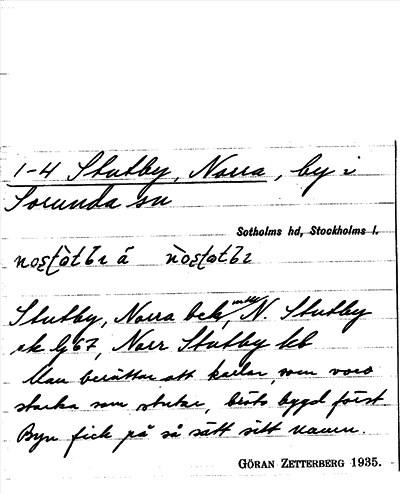 1-4 Stutby, Norra, by i
Sorunda sn
Sotholms hd, Stockholms l.
Stutby, Norra bek, N. Stutby
ek bj 67, Norr Stutby kb
Man berättar att karlar, som voro
starka som stutar, bröto bygd först
Byn fick på så sätt sitt namn.
GÖRAN ZETTERBERG 1935.